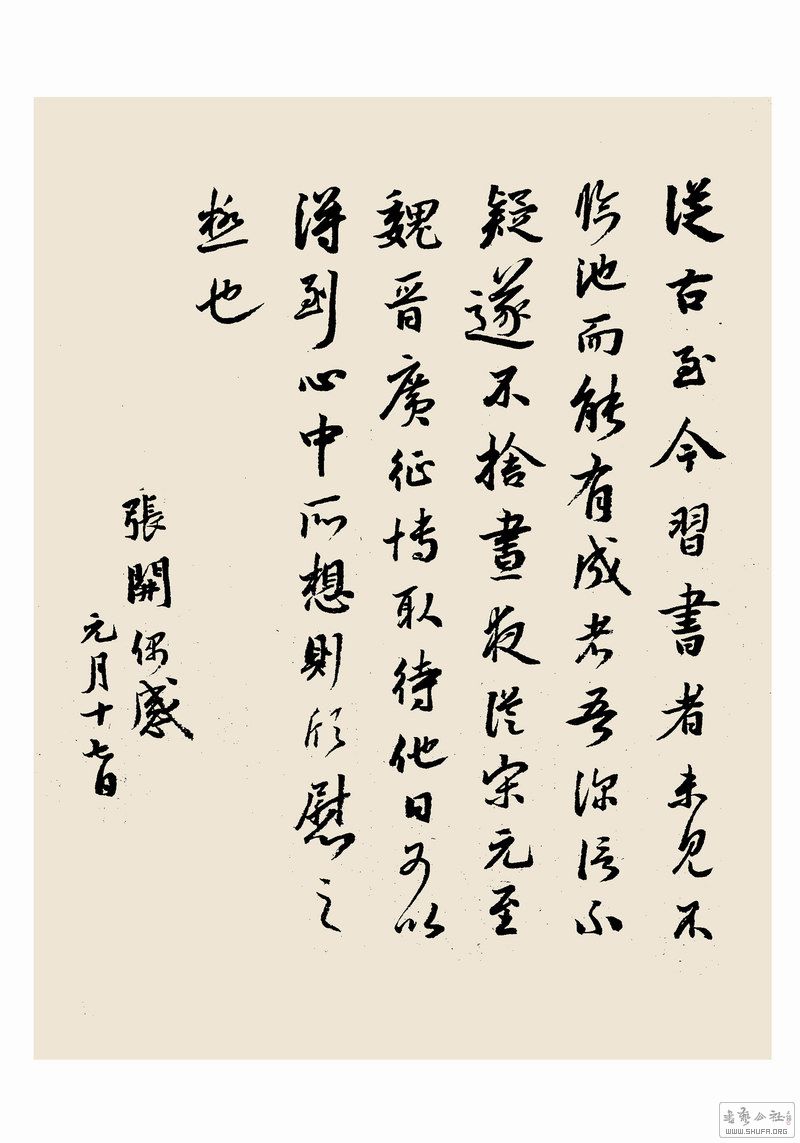 從古至今習書者未見不
臨池而能有成者吾深信不
疑遂不捨晝夜從宋元至
魏晉廣征博取待他日可以
得到心中所想則欣慰之
極也
張開偶感
元月十七日
書藝公社
WWW.SHUFA.ORG